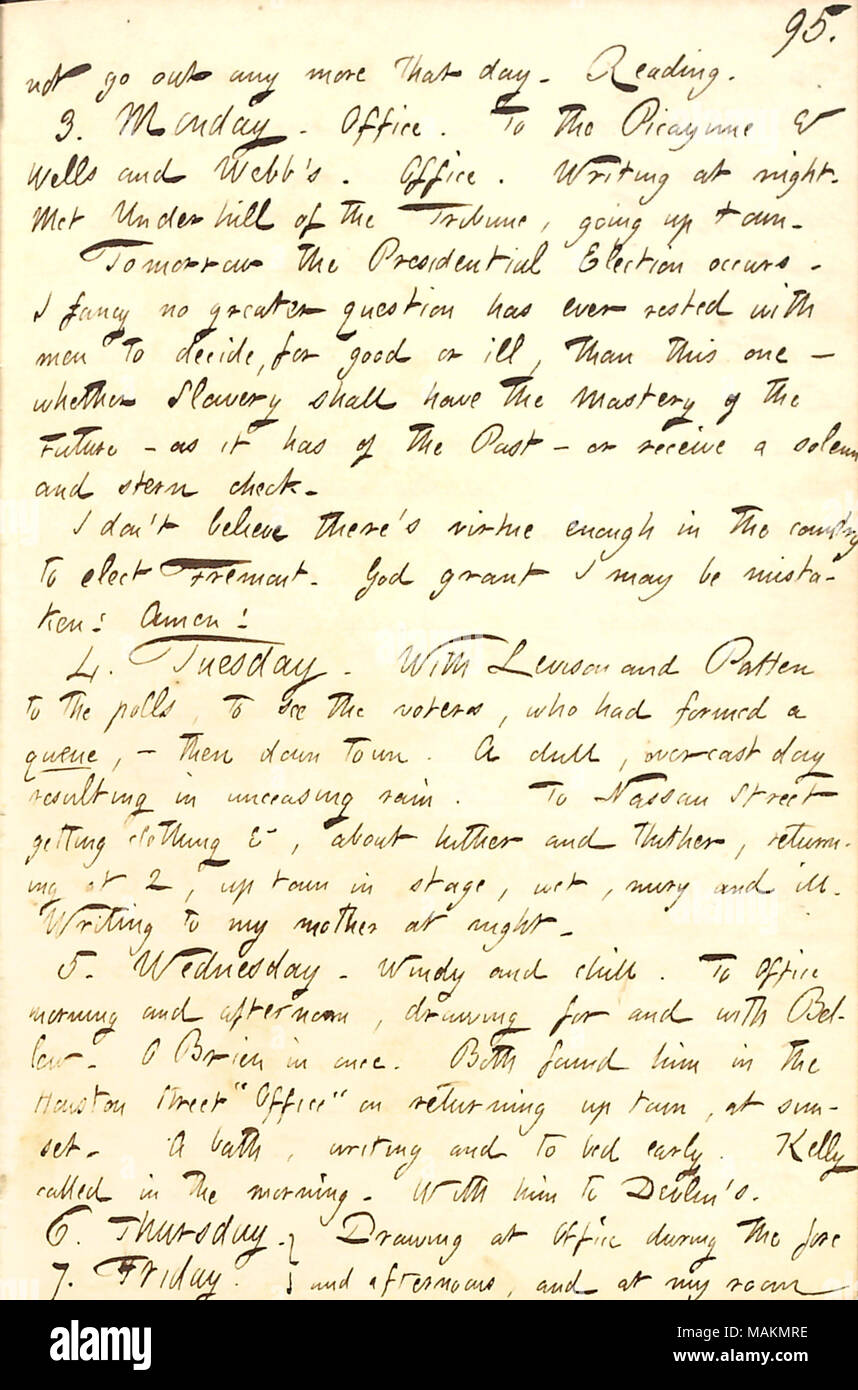 95.
not go out any more that day. Reading.
3. Monday. Office. To the Picayune &
Wells and Webb's. Office. Writing at night.
Met Underhill of the Tribune, going up town.
Tomorrow the Presidential Election occurs.
I fancy no greater question has ever rested with
men to decide, for good or ill, than this one —
whether Slavery shall have the Mastery of the
Future — as it has of the Past — or receive a solemn
and stern check.
I don't believe there's virtue enough in the country
to elect Fremont. God grant I may be mista-
ken! Amen!
4. Tuesday. With Levison and Patten
to the polls, to see the voters, who had formed a
queue, — then down town. A dull, overcast day
resulting in unceasing rain. To Nassau Street
getting clothing &, about hither and thither, return-
ing at 2, up town in stage, wet, and ill.
Writing to my mother at night.
5. Wednesday. Windy and chill. To Office
morning and afternoon, drawing for and with Bel-
lew. O Brien in once. Both found him in the
Houston Street "Office" on returning up town, at sun-
set. A bath, writing and to bed early. Kelly
called in the morning. With him to Devlin's.
6. Thursday. } Drawing at Office during the fore
7. Friday. } and afternoons, and at my room
alamy
Image ID: MAKMRE
www.alamy.com